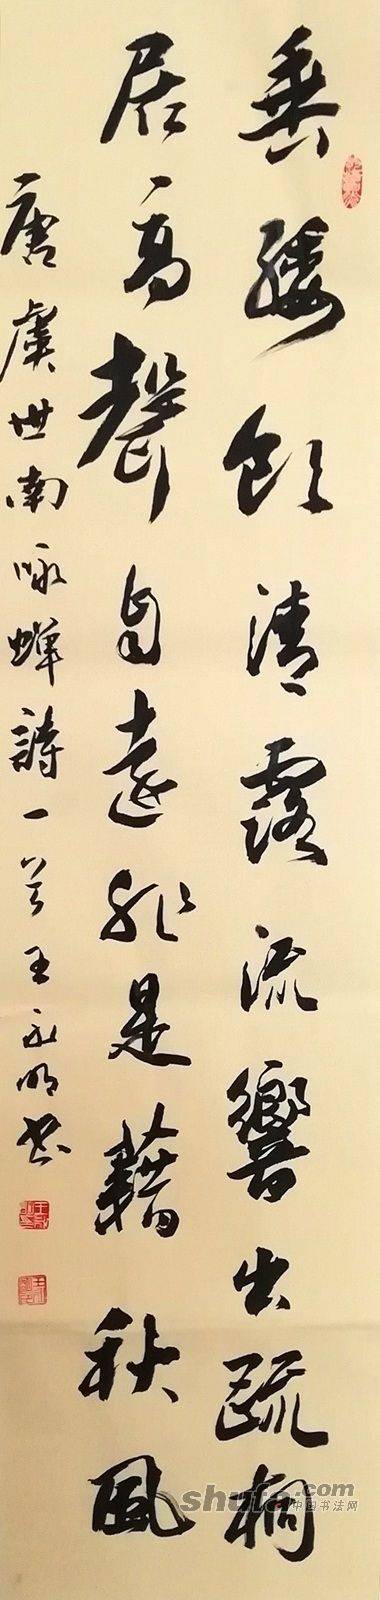 垂緌飲清露流響出疏桐
居高聲自遠非是藉秋風
唐虞世南咏蟬詩一首王永明书
shufa.com
中国书法网